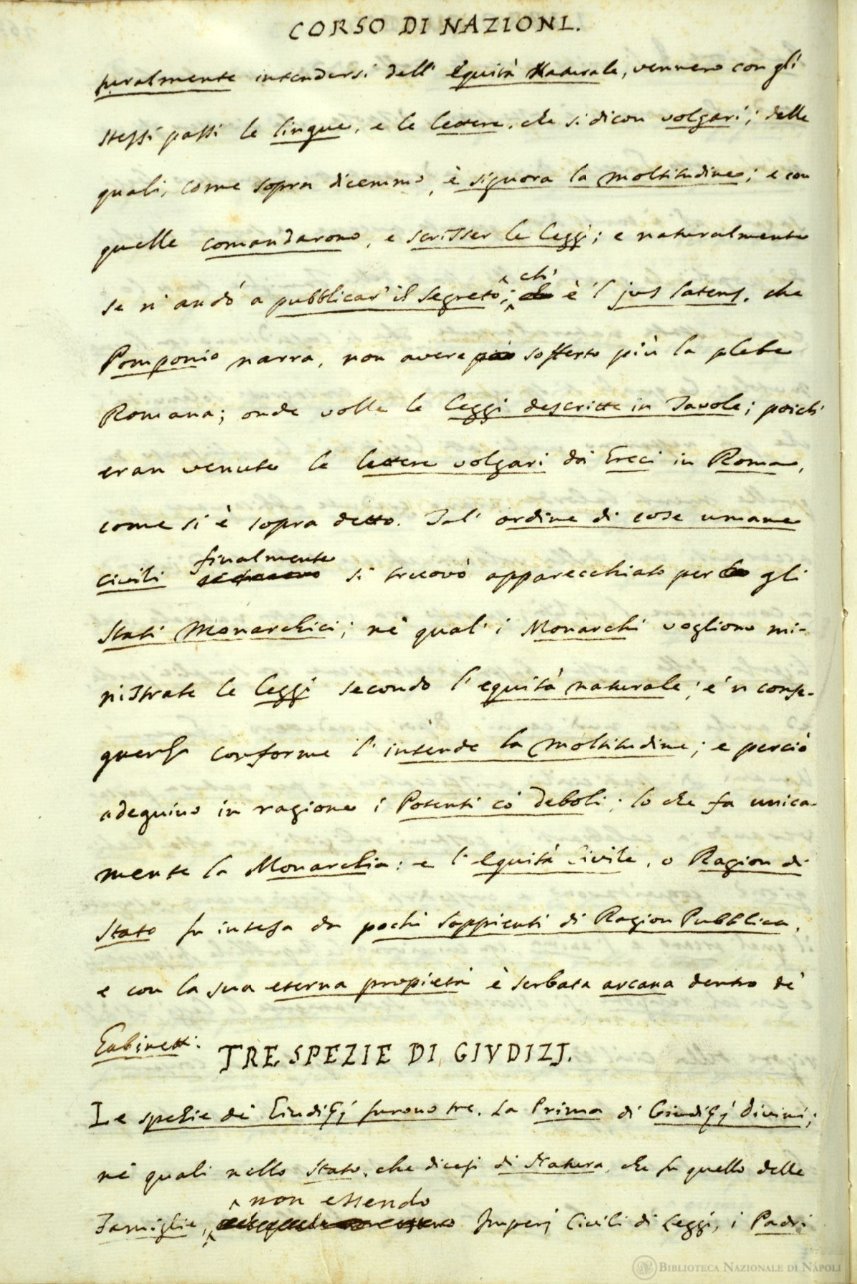 CORSO DI NAZIONI.
turalmente intendersi dell' Equità Naturale, vennero con gli
stessi passi le lingue, e le lettere, che si dicon volgari; delle
quali, come sopra dicemmo, è signora la moltitudine; e con
quelle comandarono, e scrisser le Leggi; e naturalmente
se n'andò a pubblicar' il segreto; ch' è 'l jus latens, che
Pomponio narra, non avere sofferto più la plebe
Romana; onde volle le Leggi descritte in Tavole; poichè
eran venute le lettere volgari da' Greci in Roma,
come si è sopra detto. Tal' ordine di cose umane
civili finalmente si truovò apparecchiato per gli
Stati Monarchici; ne' quali i Monarchi vogliono mi-
nistrate le Leggi secondo l' equità naturale; e 'n conse-
guenza conforme l' intende la moltitudine; e perciò
adeguino in ragione i Potenti co' Deboli; lo che fa unica-
mente la Monarchia: e l' equità Civile, o Ragion di
Stato fu intesa da pochi sappienti di Ragion Pubblica,
e con la sua eterna propietà è serbata arcana dentro de'
Gabinetti.
TRE SPEZIE DI GIVDIZJ.
Le spezie de' Giudizj furono tre. La Prima di Giudizj divini;
ne' quali nello Stato, che dicesi di Natura, che fu quello delle
Famiglie, non essendo Imperj Civili di Leggi, i Padri
BIBLIOTECA NAZIONALE DI NAPOLI